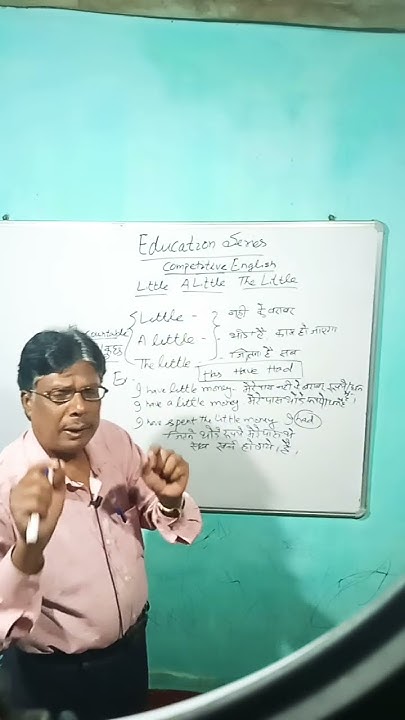 Education Series
Competitive English
Little A Little The Little
Little - नही के बराबर
A little - थोडा है, काम हो जाएगा
The little - जितना है सब
Has Have Had
Ex
I have little money - मेरे पास नही के बराबर
I have a little money मेरे पास थोडे रूपये है।
I have spent the little money I had
जितने थोडे रूपये मेरे पास थे
सब खर्च हो गये है।